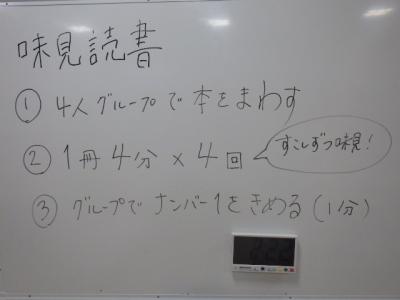 味見読書
① 4人グループで本をまわす
② 1冊4分×4回
すこしずつ味見!
③ グループでナンバー1をきめる(1分)